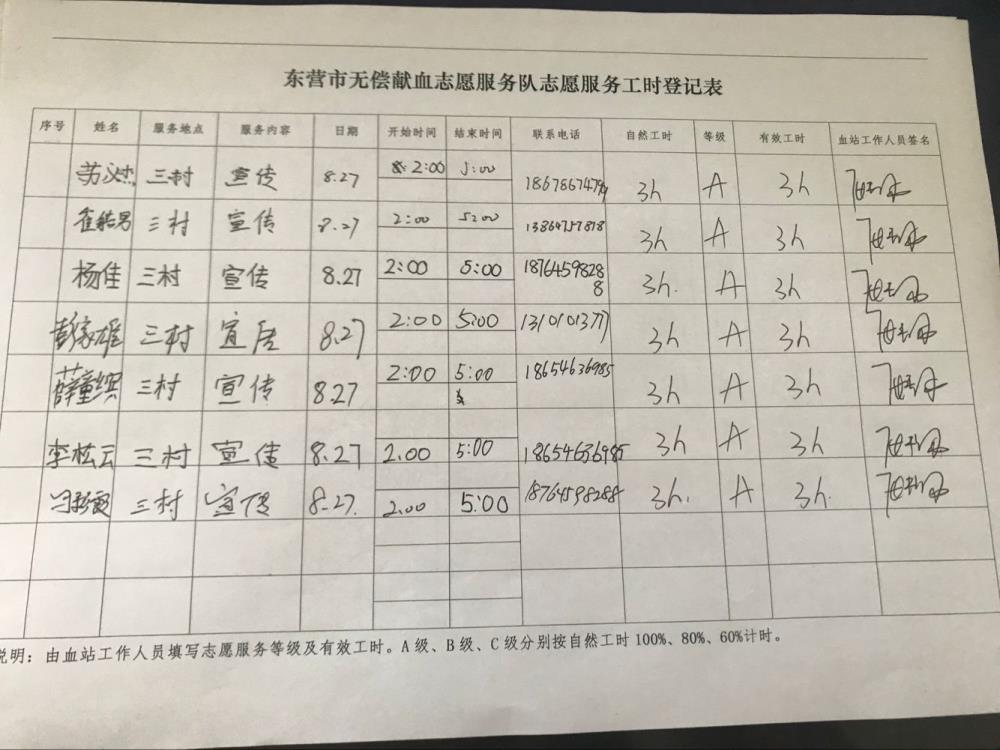 东营市无偿献血志愿服务队志愿服务工时登记表
序号 姓名 服务地点 服务内容 日期 开始时间 结束时间 联系电话 自然工时 等级 有效工时 血站工作人员签名
三村 宣传 8.27 2:00 5:00 3h A 3h
三村 宣传 8.27 2:00 5:00 13864757878 3h A 3h
杨佳 三村 宣传 8.27 2:00 5:00 18764598288 3h. A 3h
彭家雄 三村 宣传 8.27 2:00 5:00 13101013777 3h A 3h
薛童缤 三村 宣传 8.27 2:00 5:00 18654636985 3h A 3h
李松云 三村 宣传 8.27 2.00 5:00 18654636985 3h A 3h
三村 宣传 8.27. 2.00 5:00 18764598288 3h. A 3h.
说明：由血站工作人员填写志愿服务等级及有效工时。A级、B级、C级分别按自然工时100%、80%、60%计时。